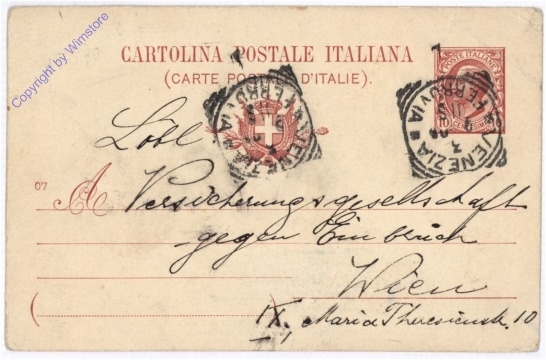 Copyright by Wimstore
CARTOLINA POSTALE ITALIANA
(CARTE POSTALE D'ITALIE).
POSTE ITALIANE
10 CENTESIMI 10
VENEZIA
FERROVIA
VENEZIA
FERROVIA
Löbl
07
A Versicherungsgesellschaft
gegen Einbruch
Wien
IX, Maria Theresienstr. 10